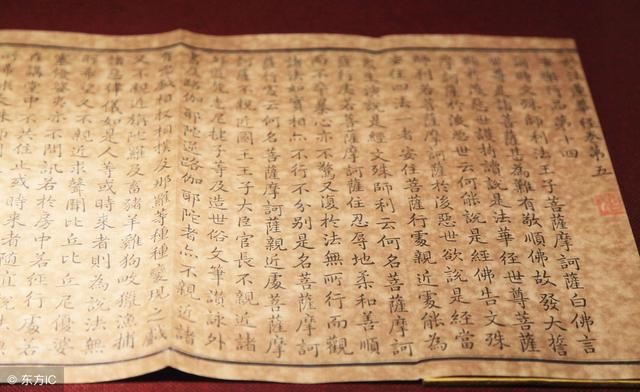 妙法蓮華經卷第五
安樂行品第十四
爾時文殊師利法王子菩薩摩訶薩白佛言
世尊是諸菩薩甚為難有敬順佛故發大誓
願於後惡世護持讀說是法華經世尊菩薩
摩訶薩於後惡世云何能說是經佛告文殊
師利若菩薩摩訶薩於後惡世欲說是經當
安住四法一者安住菩薩行處親近處能為
眾生演說是經文殊師利云何名菩薩摩訶
薩行處若菩薩摩訶薩住忍辱地柔和善順
而不卒暴心亦不驚又復於法無所行而觀
諸法如實相亦不行不分別是名菩薩摩訶
薩行處云何名菩薩摩訶薩親近處菩薩摩
訶薩不親近國王王子大臣官長不親近諸
外道梵志尼揵子等及造世俗文筆讚詠外
書及路伽耶陀逆路伽耶陀者亦不親近諸
有兇戲相扠相撲及那羅等種種變現之戲
又不親近旃陀羅及畜豬羊雞狗畋獵漁捕
諸惡律儀如是人等或時來者則為說法無
所希望又不親近求聲聞比丘比丘尼優婆
塞優婆夷亦不問訊若於房中若經行處若
在講堂中不共住止或時來者隨宜說法
© 东方IC